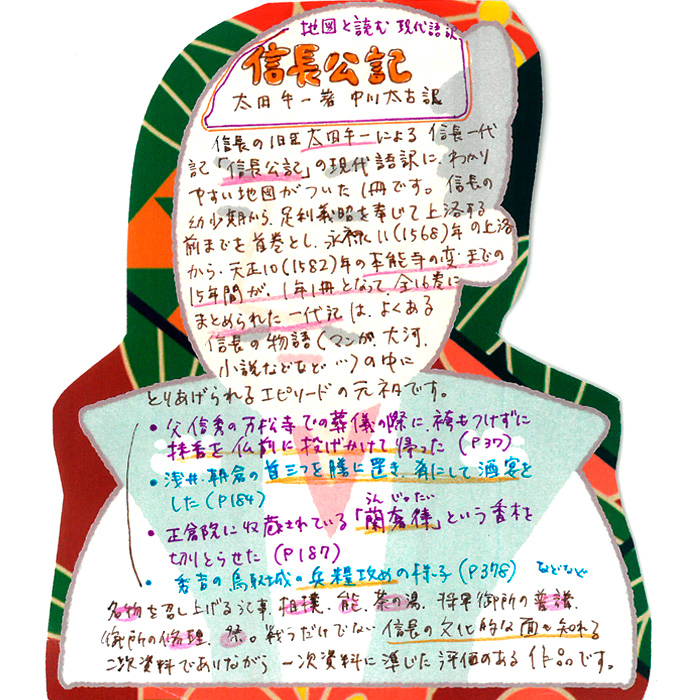 地図と読む 現代語訳
信長公記
太田牛一著 中川太古訳
信長の旧臣太田牛一による信長一代
記「信長公記」の現代語訳に、わかり
やすい地図がついた1冊です。信長の
幼少期から、足利義昭を奉じて上洛する
前までを首巻とし、永禄11(1568)年の上洛
から、天正10(1582)年の本能寺の変までの
15年間が、1年1冊となって全16巻に
まとめられた一代記は、よくある
信長の物語(マンガ、大河、
小説などなど…)の中に
とりあげられるエピソードの元祖です。
・父信秀の万松寺での葬儀の際に、袴もつけずに
抹香を仏前に投げかけて帰った(P37)
・浅井・朝倉の首三つを膳に置き、肴にして酒宴を
した(P184)
うん じゃ たい
・正倉院に収蔵されている「蘭奢待」という香木を
切りとらせた(P187)
・秀吉の鳥取城の兵糧攻めの様子(P378) などなど
名物を召し上げる記事、相撲、能、茶の湯、将軍御所の普請、
御所の修理、祭。戦うだけでない信長の文化的な面も知れる
二次資料でありながら一次資料に準じた評価のある作品です。